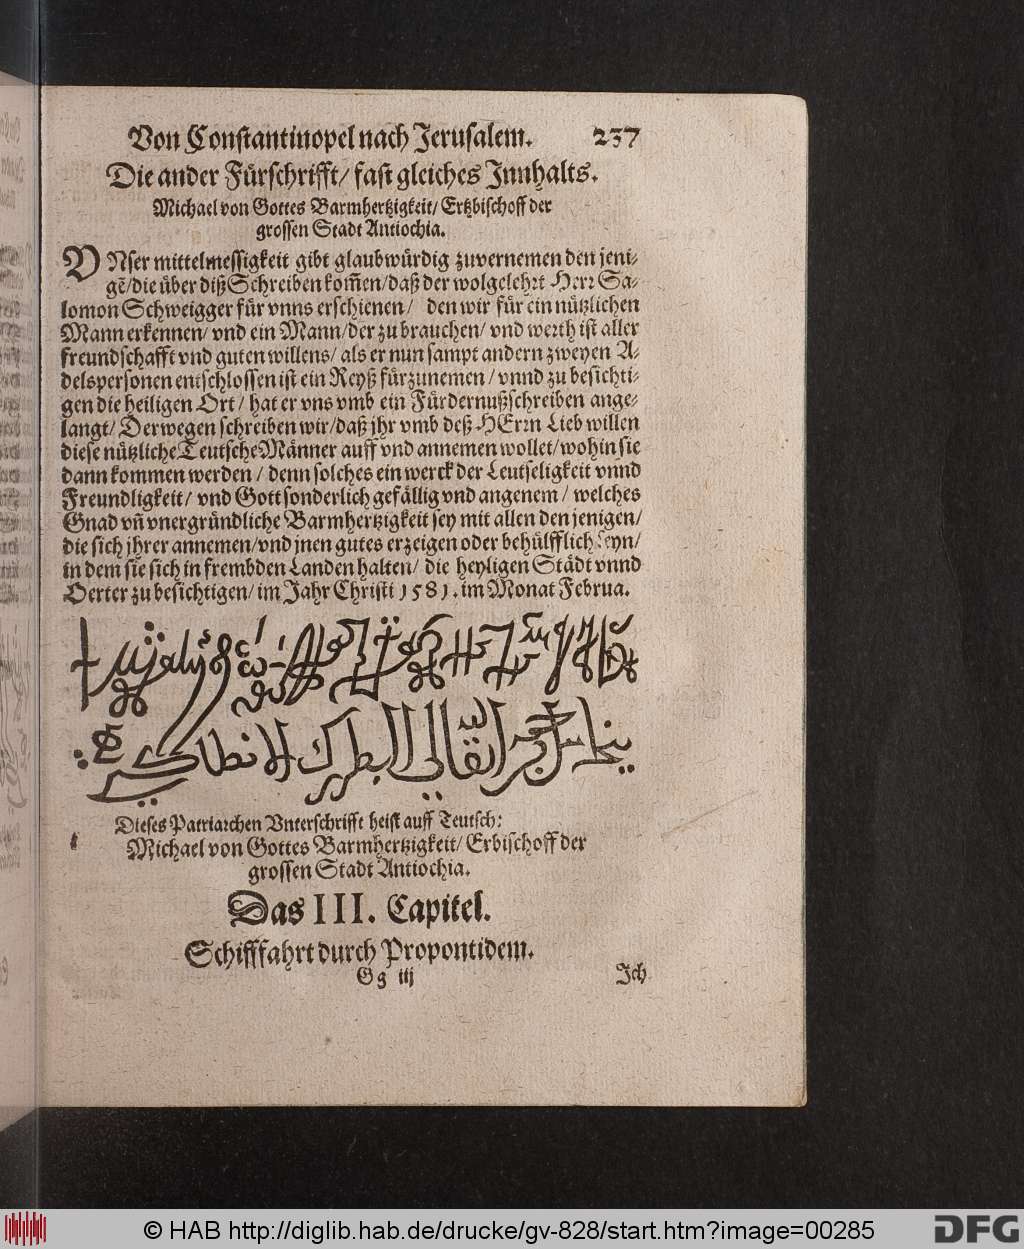 Von Constantinopel nach Jerusalem. 237
Die ander Fürschrifft/ fast gleiches Innhalts.
Michael von Gottes Barmhertzigkeit/ Ertzbischoff der
grossen Stadt Antiochia.
VNser mittelmessigkeit gibt glaubwürdig zuvernemen den jeni-
gē/die über diß Schreiben kom̄en/daß der wolgelehrt Herr Sa-
lomon Schweigger für vnns erschienen/ den wir für ein nützlichen
Mann erkennen/ vnd ein Mann/der zu brauchen/ vnd werth ist aller
freundschafft vnd guten willens/ als er nun sampt andern zweyen A-
delspersonen entschlossen ist ein Reyß fürzunemen/ vnnd zu besichti-
gen die heiligen Ort/ hat er vns vmb ein Fürdernußschreiben ange-
langt/ Derwegen schreiben wir/daß jhr vmb deß HErrn Lieb willen
diese nützliche Teutsche Männer auff vnd annemen wollet/wohin sie
dann kommen werden/ denn solches ein werck der Leutseligkeit vnnd
Freundligkeit/ vnd Gott sonderlich gefällig vnd angenem/ welches
Gnad vn̄ vnergründliche Barmhertzigkeit sey mit allen den jenigen/
die sich jhrer annemen/vnd jnen gutes erzeigen oder behülfflich seyn/
in dem sie sich in frembden Landen halten/ die heyligen Städt vnnd
Oerter zu besichtigen/ im Jahr Christi 1581. im Monat Februa.
البطرك الانطاكي
Dieses Patriarchen Vnterschrifft heist auff Teutsch:
Michael von Gottes Barmhertzigkeit/ Erbischoff der
grossen Stadt Antiochia.
Das III. Capitel.
Schifffahrt durch Propontidem.
Gg iij Ich
© HAB http://diglib.hab.de/drucke/gv-828/start.htm?image=00285
DFG